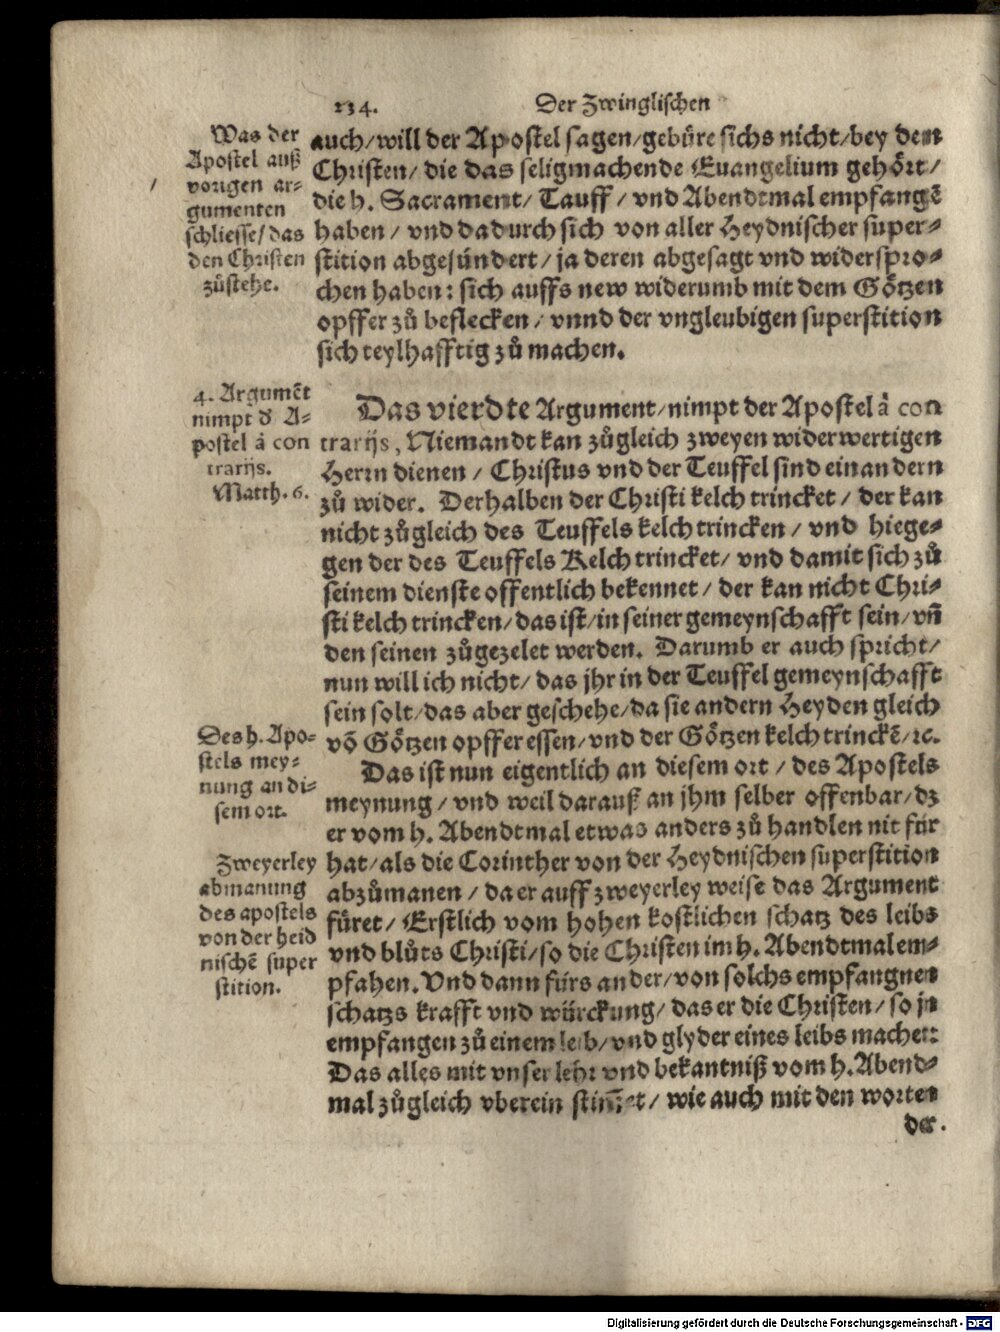 234.
Der Zwinglischen
Was der
Apostel auß
vorigen ar-
gumenten
schliesse/das
den Christen
zůstehe.
auch/will der Apostel sagen/gebüre sichs nicht/bey dem
Christen/ die das seligmachende Euangelium gehört/
die h. Sacrament/ Tauff/ vnd Abendtmal empfangẽ
haben/ vnd dadurch sich von aller Heydnischer super-
stition abgesündert/ ja deren abgesagt vnd widerspro-
chen haben: sich auffs new widerumb mit dem Götzen
opffer zů beflecken/ vnnd der vngleubigen superstition
sich teylhafftig zů machen.
4. Argumẽt
nimpt d' A-
postel â con
trarijs.
Matth. 6.
Das vierdte Argument/nimpt der Apostel â con
trarijs, Niemandt kan zůgleich zweyen widerwertigen
Herrn dienen/ Christus vnd der Teuffel sind einandern
zů wider. Derhalben der Christi kelch trincket/ der kan
nicht zůgleich des Teuffels kelch trincken/ vnd hiege-
gen der des Teuffels Kelch trincket/ vnd damit sich zů
seinem dienste offentlich bekennet/ der kan nicht Chri-
sti kelch trincken/das ist/in seiner gemeynschafft sein/vñ
den seinen zůgezelet werden. Darumb er auch spricht/
nun will ich nicht/ das jhr in der Teuffel gemeynschafft
sein solt/das aber geschehe/da sie andern Heyden gleich
võ Götzen opffer essen/vnd der Götzen kelch trinckẽ/ꝛc.
Des h. Apo-
stels mey-
nung an di-
sem ort.
Das ist nun eigentlich an diesem ort/ des Apostels
meynung/ vnd weil darauß an jhm selber offenbar/dz
er vom h. Abendtmal etwas anders zů handlen nit für
hat/als die Corinther von der Heydnischen superstition
abzůmanen/ da er auff zweyerley weise das Argument
füret/ Erstlich vom hohen kostlichen schatz des leibs
vnd blůts Christi/so die Christen im h. Abendtmal em-
pfahen. Vnd dann fürs ander/von solchs empfangnen
schatzs krafft vnd würckung/ das er die Christen/ so jn
empfangen zů einem leib/vnd glyder eines leibs machet:
Das alles mit vnser lehr vnd bekantniß vom h. Abend-
mal zůgleich vberein stim̃et/ wie auch mit den worten
Zweyerley
abmanung
des apostels
von der heid
nischẽ super
stition.
der.
Digitalisierung gefördert durch die Deutsche Forschungsgemeinschaft - DFG